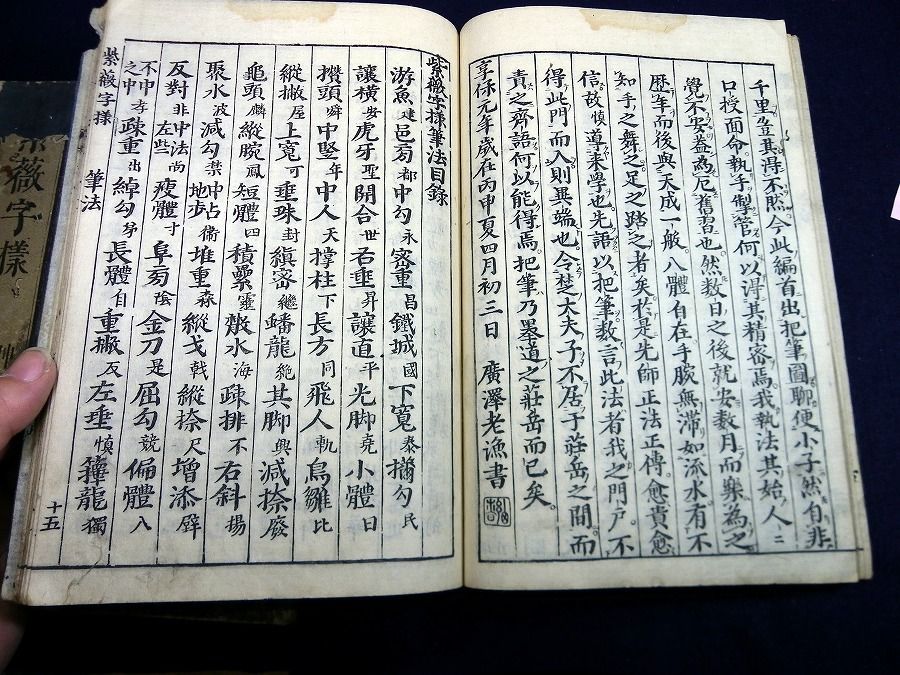 千里豈其得不然今此編首出把筆圖聊便小子然自非
口授面命執手掣管何以得其精密焉我執法其始人二
覺不安蓋為尼舊習也然數日之後就安數月而樂為之
歷年而後與天成一般八體自在手腕無滯如流水有不
知手之舞之足之踏之者矣於是先師正法正傳愈貴愈
信故慎導来學也先語以把筆數言此法者我之門戸不
得此門而入則異端也今楚大夫子不居于莊岳之間而
責之齊語何以能得焉把筆乃墨道之莊岳而已矣
享保元年歲在丙申夏四月初三日 廣澤老漁書
紫薇字様筆法目錄
游魚建邑旁都中勾永密重昌鐵城國下寬泰擶勾民
讓橫安虎牙聖開合世右垂昇讓直平光脚堯小體日
攢頭舜中竪年中人天撑柱下長方同飛人軌鳥雛比
縱撇居上寬可垂珠封縝密繼蟠龍絶其脚興減捺廢
龜頭麟縱腕鳳短體四積纍靈散水海疎排不右斜揚
聚水波減勾禁中占地步備堆重森縱戈戟縱捺尺增添辟
反對非中法左些尚瘦體寸阜旁陰金刀是屈勾競偏體入
不中之中孝疎重出綽勾身長體自重撇友左垂慎獨
紫薇字様 筆法 十五
薇字樣